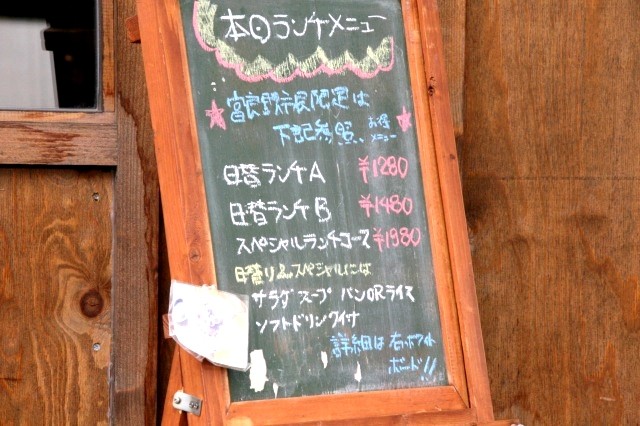 本日ランチメニュー
富良野市民限定は
下記参照、お得メニュー
日替ランチA ¥1280
日替ランチB ¥1480
スペシャルランチコース ¥1980
日替り&スペシャルには
サラダ スープ パンORライス
ソフトドリンク付
詳細は右ホワイト
ボード!!